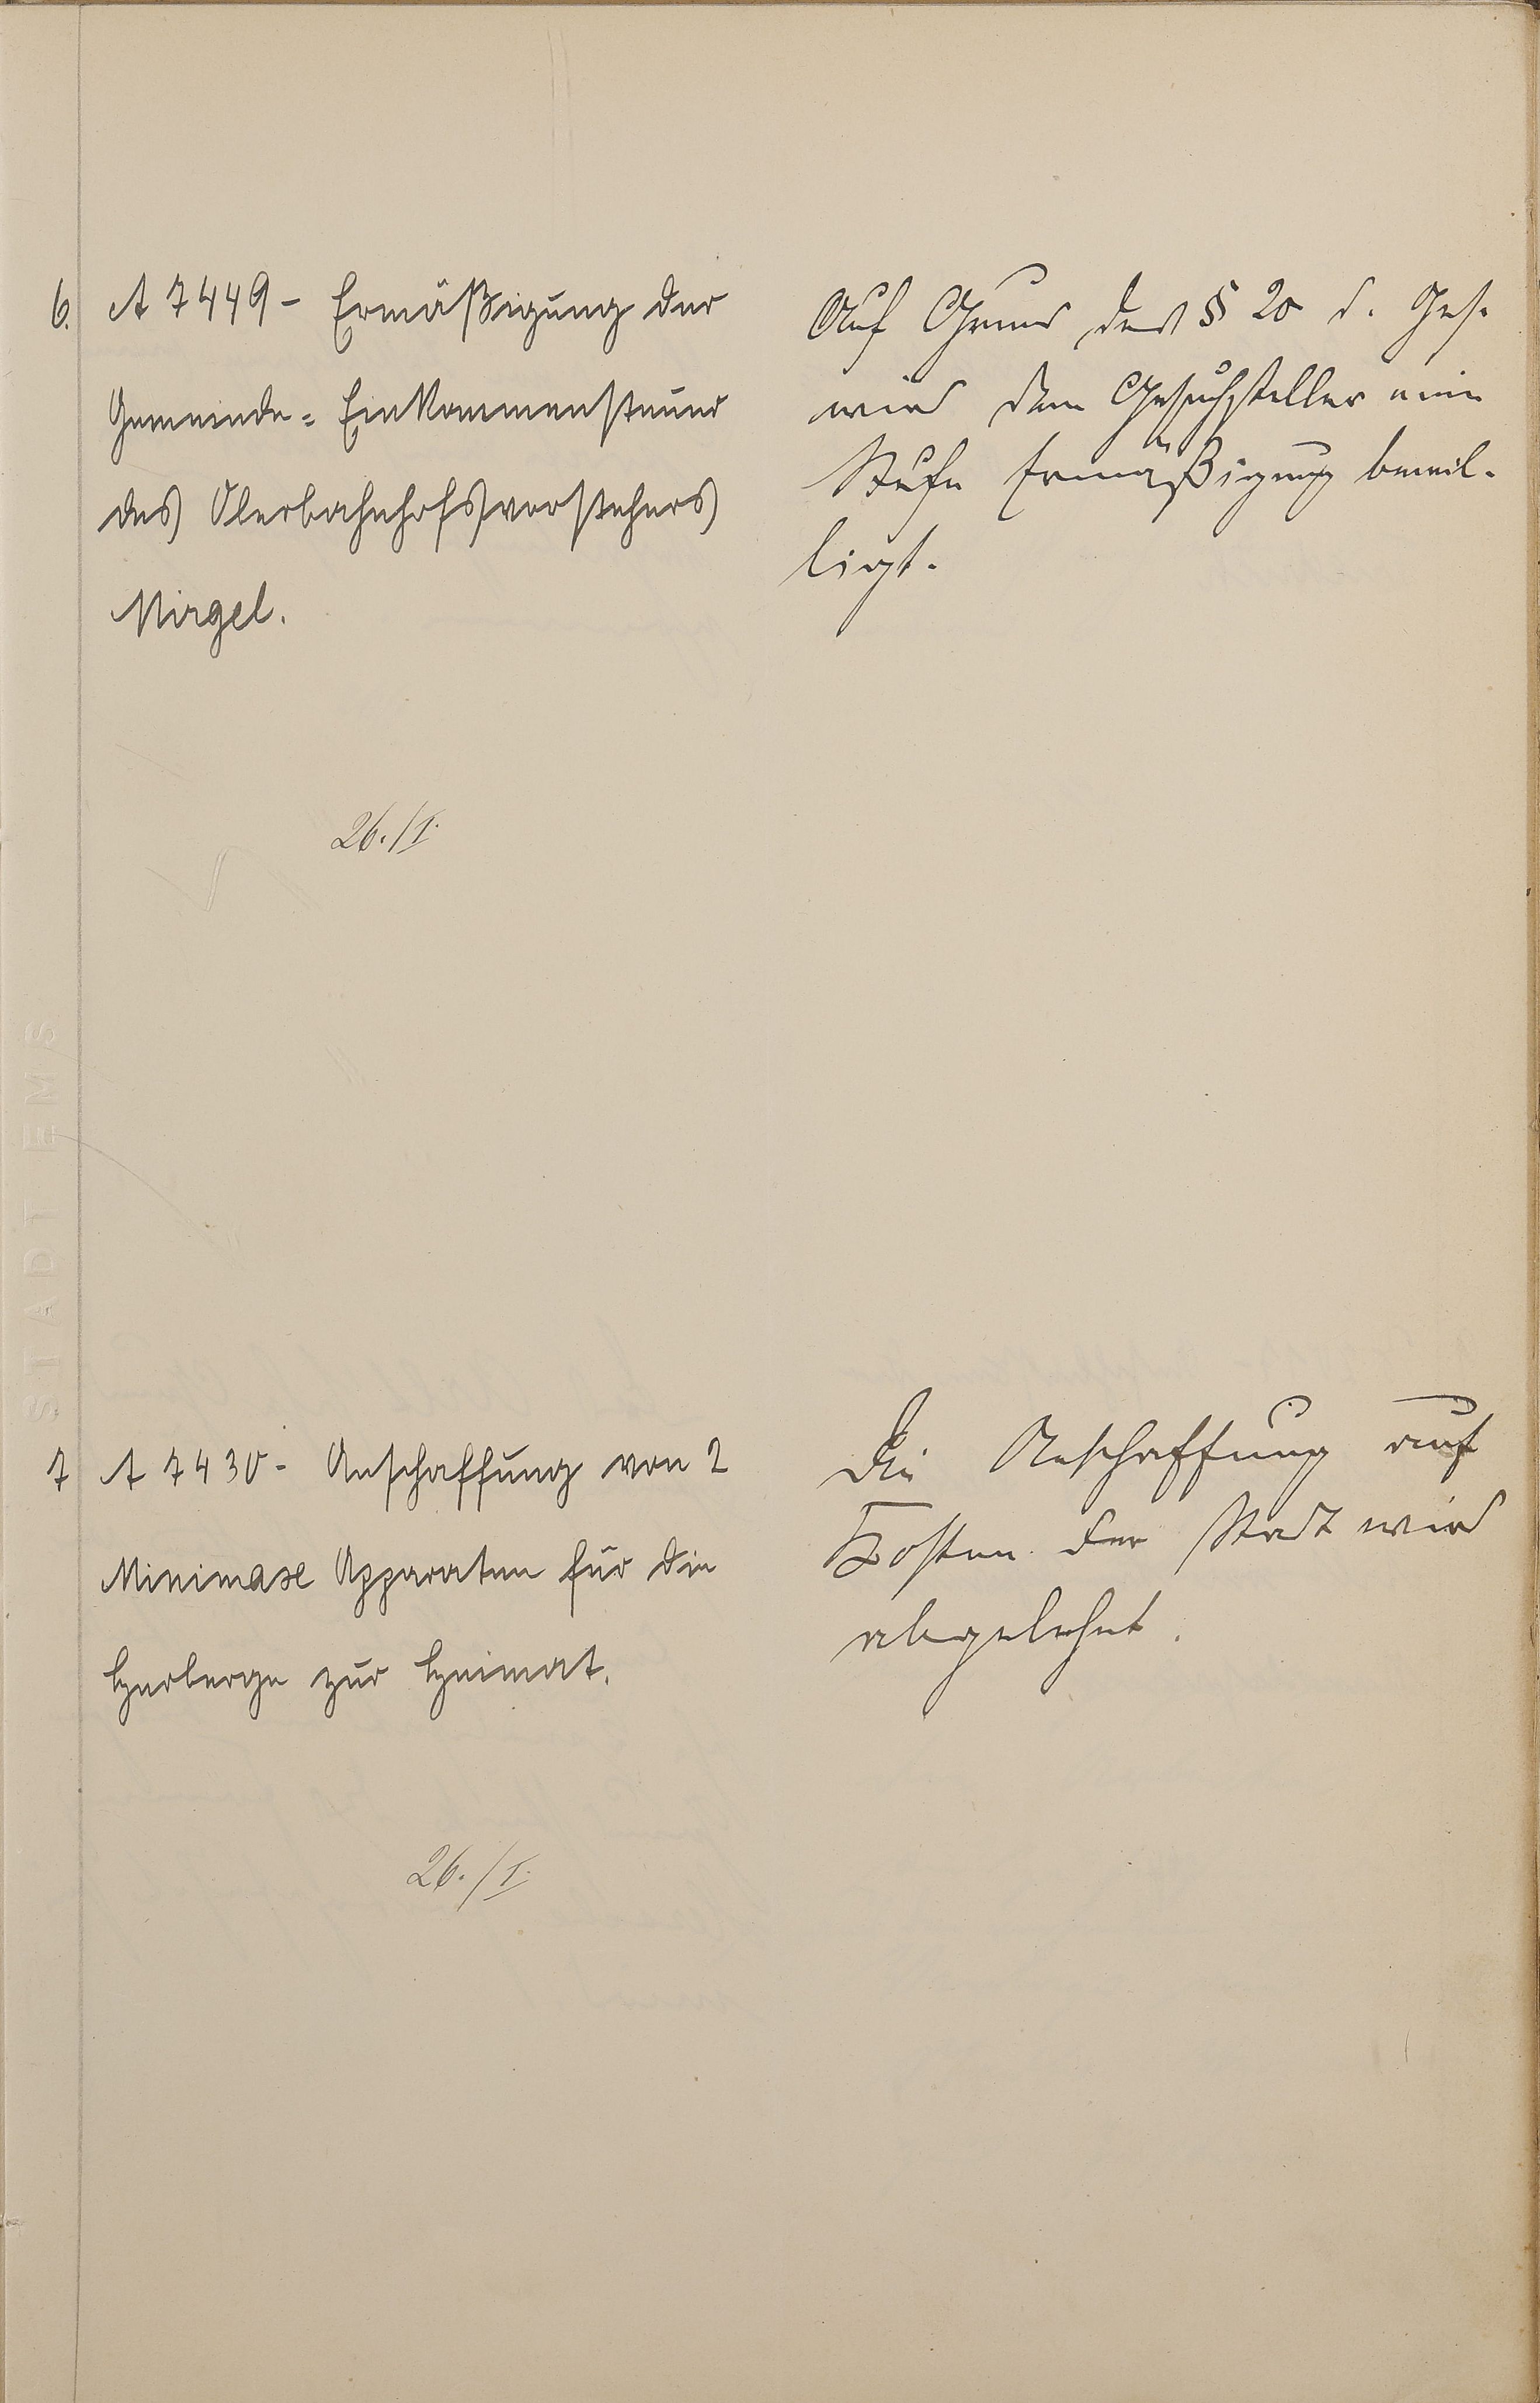 6. A 7449 - Ermäßigung der
Gemeinde-Einkommensteuer
des Oberbahnhofsvorstehers
Nirgel.
26./I.
Auf Grund des § 20 d. Ges.
wird dem Gesuchsteller eine
Stufe Ermäßigung bewil-
ligt.
7 A 7430 - Anschaffung von 2
Minimax Apparaten für die
Herberge zur Heimat.
26./I.
Die Anschaffung auf
Kosten der Stadt wird
abgelehnt.
STADT EMS